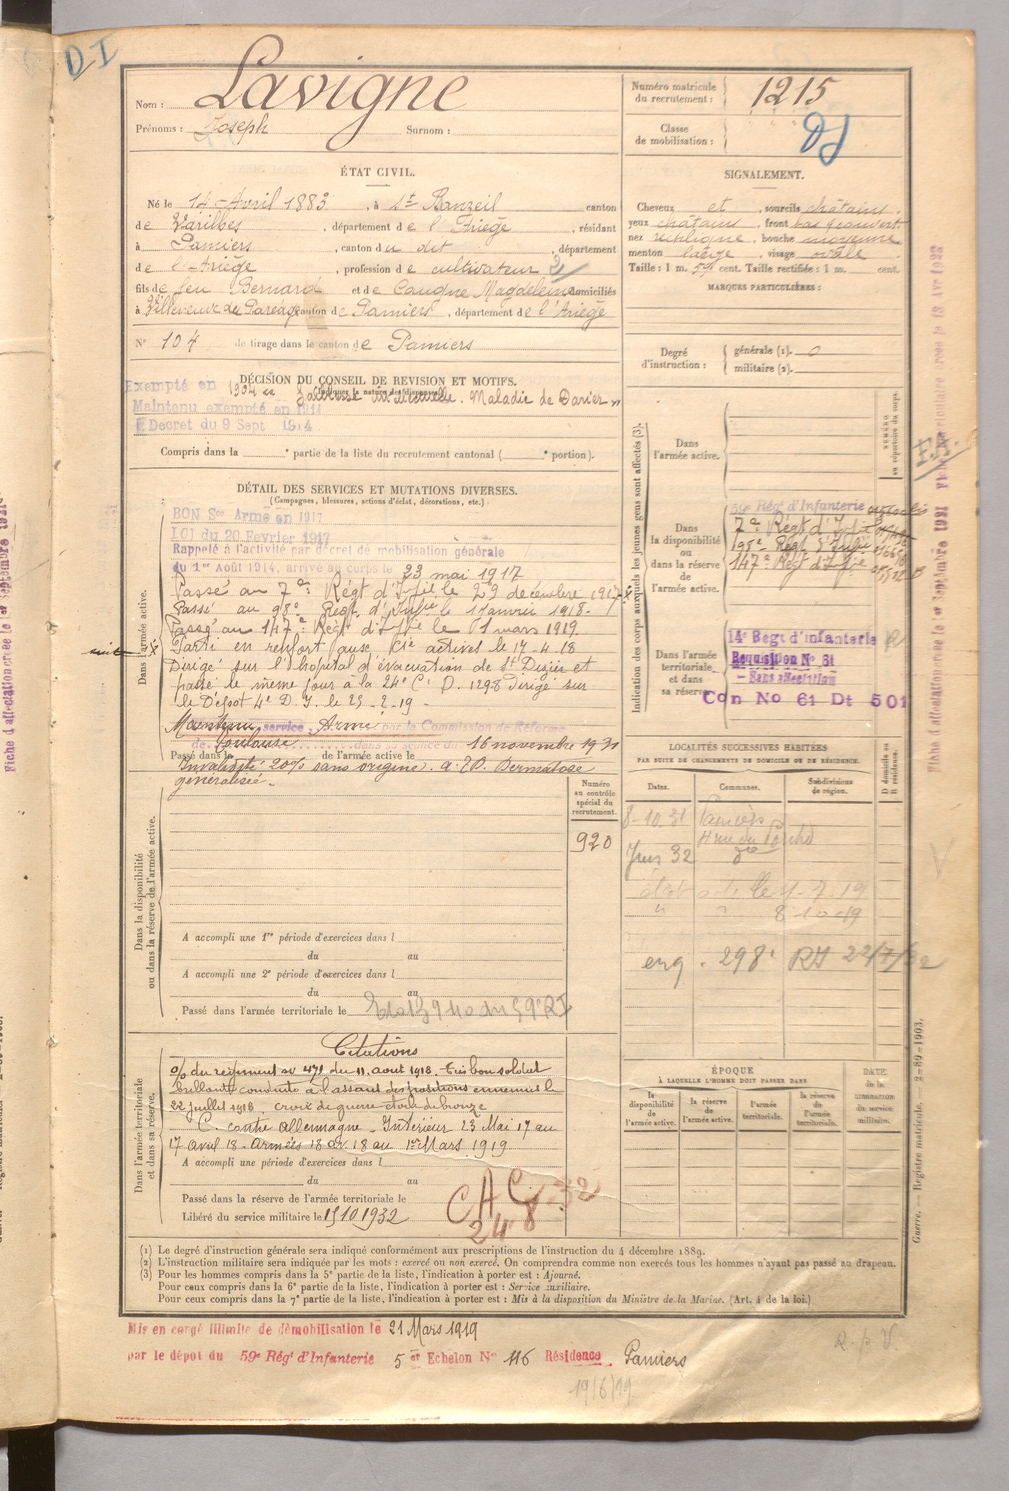 DI
Nom : Lavigne
Prénoms : Joseph Surnom :
Numéro matricule du recrutement : 1215
Classe de mobilisation :
ÉTAT CIVIL.
Né le 14 Avril 1883, à St Banzeil canton
de Varilhes, département de l'Ariège, résidant
à Pamiers, canton du dit, département
de l'Ariège, profession de cultivateur
fils de feu Bernard et de Caugne Magdeleine domiciliés
à Villeneuve du Paréage canton de Pamiers, département de l'Ariège
N° 104 de tirage dans le canton de Pamiers
SIGNALEMENT.
Cheveux et, sourcils châtains.
yeux châtains, front bas
nez rectiligne, bouche moyenne
menton large, visage ovale
Taille : 1 m. 59 cent. Taille rectifiée : 1 m. cent.
MARQUES PARTICULIÈRES :
Degré d'instruction : générale (1). 0
militaire (2).
DÉCISION DU CONSEIL DE REVISION ET MOTIFS.
(Indiquer la nature des dispenses)
Exempté en 1904 Maladie de Darier
Maintenu exempté en 1914
Decret du 9 Sept 1914
Compris dans la e partie de la liste du recrutement cantonal ( e portion).
DÉTAIL DES SERVICES ET MUTATIONS DIVERSES.
(Campagnes, blessures, actions d'éclat, décorations, etc.)
BON Sce Armé en 1917
LOI du 20 Fevrier 1917
Rappelé à l'activité par décret de mobilisation générale
du 1er Août 1914, arrivé au corps le 23 mai 1917
Passé au 7e Régt d'Inf.ie le 29 décembre 1917
Passé au 98e Régt d'Inf.ie le 1 Janvier 1918.
Passé au 147e Régt d'Inf.ie le 1 mars 1919.
Parti en renfort aux Cie actives le 17-4-18
Dirigé sur l'hopital d'évacuation de St Dizier et
passé le même jour à la 24e C. D. 1298 Dirigé sur
le Dépôt 4e D. I. le 25-2-19-
Maintenu service Armé par la Commission de Réforme
de Toulouse dans sa séance du 16 novembre 1931
Passé dans la de l'armée active le
Invalidité 20% sans origine. Dermatose
généralisée.
Dans l'armée active.
Numéro au contrôle spécial du recrutement.
920
Dans la disponibilité ou dans la réserve de l'armée active.
A accompli une 1re période d'exercices dans l
du au
A accompli une 2e période d'exercices dans l
du au
Passé dans l'armée territoriale le
Citations
O/ du régiment n° 471 du 11 aout 1918. Très bon soldat
brillante conduite à l'assaut des positions ennemies le
22 juillet 1918. croix de guerre étoile de bronze
C. contre Allemagne - Intérieur 23 Mai 17 au
17 avril 18 - Armées 18 av. 18 au 1er Mars 1919
Dans l'armée territoriale et dans sa réserve.
A accompli une période d'exercices dans l
du au
Passé dans la réserve de l'armée territoriale le
Libéré du service militaire le 15 10 1932
CAC
24 8 32
Indication des corps auxquels les jeunes gens sont affectés (3).
NUMÉRO au répertoire du corps.
Dans l'armée active.
Dans la disponibilité ou dans la réserve de l'armée active.
59e Régt d'Infanterie
7e Régt d'Inf.ie
Régt d'Inf.ie
147e Régt d'Inf.ie
Dans l'armée territoriale et dans sa réserve.
14e Régt d'infanterie
Requisition N° 61
- Sans affectation
Con No 61 Dt 501
LOCALITÉS SUCCESSIVES HABITÉES
PAR SUITE DE CHANGEMENTS DE DOMICILE OU DE RÉSIDENCE.
Dates. Communes. Subdivisions de région. D domicile ou R résidence.
8-10.31 Pamiers
4 rue du
32
8-10-19
298e RI 22/7/32
ÉPOQUE
À LAQUELLE L'HOMME DOIT PASSER DANS
la disponibilité de l'armée active. la réserve de l'armée active. l'armée territoriale. la réserve de l'armée territoriale.
DATE de la LIBÉRATION du service militaire.
(1) Le degré d'instruction générale sera indiqué conformément aux prescriptions de l'instruction du 4 décembre 1889.
(2) L'instruction militaire sera indiquée par les mots : exercé ou non exercé. On comprendra comme non exercés tous les hommes n'ayant pas passé au drapeau.
(3) Pour les hommes compris dans la 5e partie de la liste, l'indication à porter est : Ajourné.
Pour ceux compris dans la 6e partie de la liste, l'indication à porter est : Service auxiliaire.
Pour ceux compris dans la 7e partie de la liste, l'indication à porter est : Mis à la disposition du Ministre de la Marine. (Art. 4 de la loi.)
Guerre. — Registre matricule. 2-89-1903.
Mis en congé illimité de démobilisation le 21 Mars 1919
par le dépôt du 59e Régt d'Infanterie 5 Echelon N° 116 Résidence Pamiers